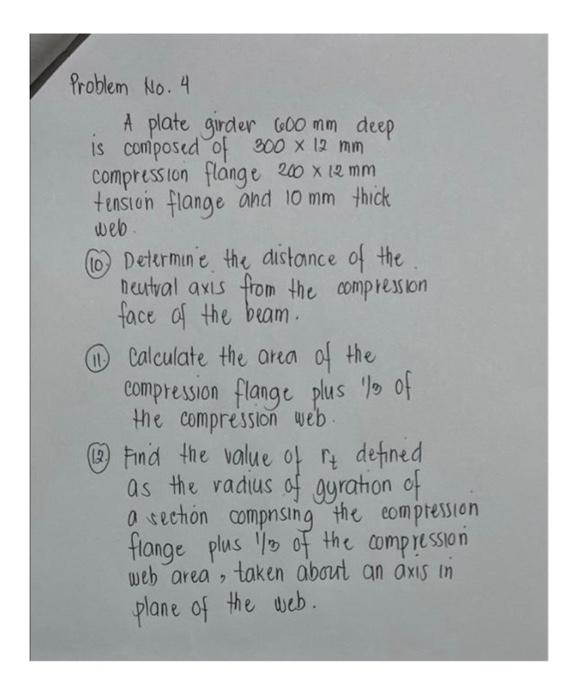 Problem No. 4
A plate girder 600 mm deep
is composed of 300 x 12 mm
compression flange 200 x 12 mm
tension flange and 10 mm thick
web.
10 Determine the distance of the
neutral axis from the compression
face of the beam.
11 Calculate the area of the
compression flange plus 1/3 of
the compression web.
12 Find the value of rt defined
as the radius of gyration of
a section comprising the compression
flange plus 1/3 of the compression
web area, taken about an axis in
plane of the web.